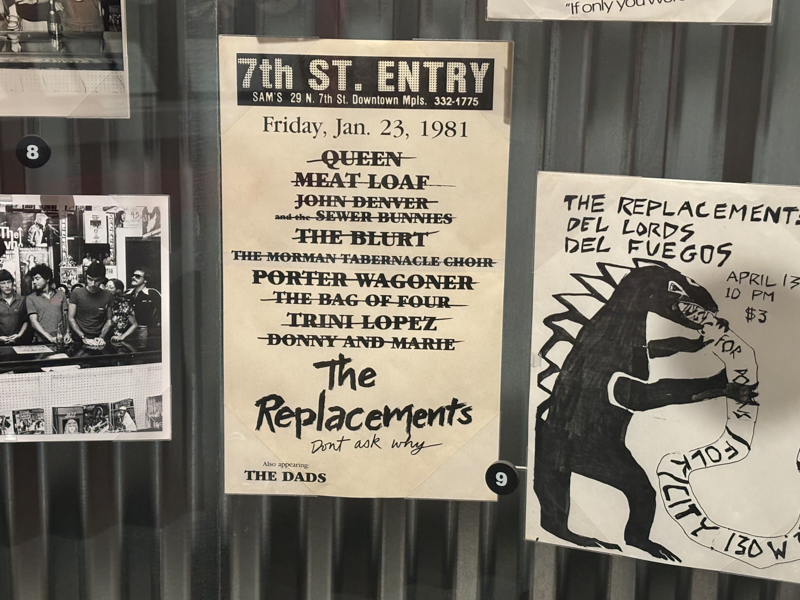 "If only you
8
7th ST. ENTRY
SAM'S 29 N. 7th St. Downtown Mpls. 332-1775
Friday, Jan. 23, 1981
QUEEN
MEAT LOAF
JOHN DENVER
and the SEWER BUNNIES
THE BLURT
THE MORMAN TABERNACLE CHOIR
PORTER WAGONER
THE BAG OF FOUR
TRINI LOPEZ
DONNY AND MARIE
The
Replacements
Dont ask why
Also appearing:
THE DADS
9
THE REPLACEMENTS
DEL LORDS
DEL FUEGOS
APRIL 13
10 PM
$3
FOLK CITY 130 W